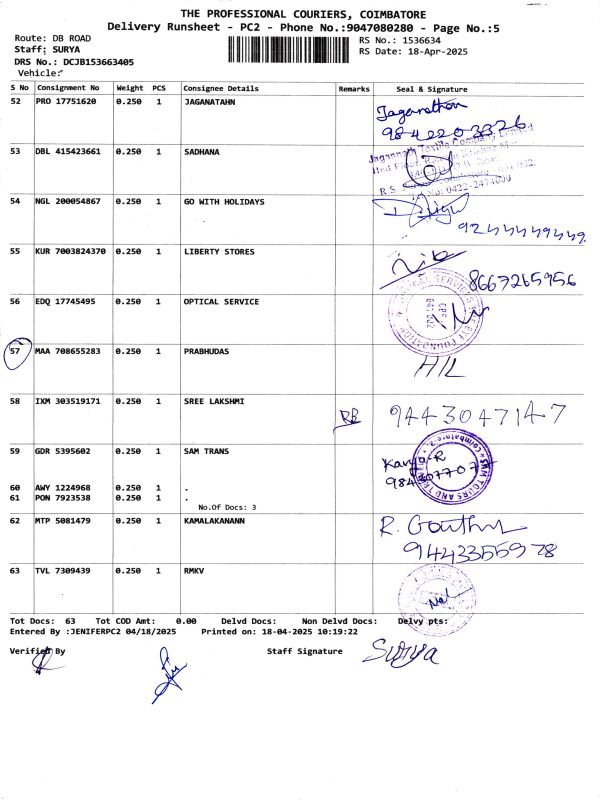 THE PROFESSIONAL COURIERS, COIMBATORE
Delivery Runsheet - PC2 - Phone No.:9047080280 - Page No.:5
Route: DB ROAD
RS No.: 1536634
Staff: SURYA
RS Date: 18-Apr-2025
DRS No.: DCJB153663405
Vehicle:
S No Consignment No Weight PCS Consignee Details Remarks Seal & Signature
52 PRO 17751620 0.250 1 JAGANATAHN Jaganathan
9842203326
53 DBL 415423661 0.250 1 SADHANA
54 NGL 200054867 0.250 1 GO WITH HOLIDAYS
9244449449
55 KUR 7003824370 0.250 1 LIBERTY STORES
8667265956
56 EDQ 17745495 0.250 1 OPTICAL SERVICE
57 MAA 708655283 0.250 1 PRABHUDAS
58 IXM 303519171 0.250 1 SREE LAKSHMI RB 9443047147
59 GDR 5395602 0.250 1 SAM TRANS Kavya-R
SAM TOURS AND
60 AWY 1224968 0.250 1 .
61 PON 7923538 0.250 1 .
No.Of Docs: 3
62 MTP 5081479 0.250 1 KAMALAKANANN
94433555978
63 TVL 7309439 0.250 1 RMKV
Tot Docs: 63 Tot COD Amt: 0.00 Delvd Docs: Non Delvd Docs: Delvy pts:
Entered By :JENIFERPC2 04/18/2025 Printed on: 18-04-2025 10:19:22
Verified By Staff Signature Surya